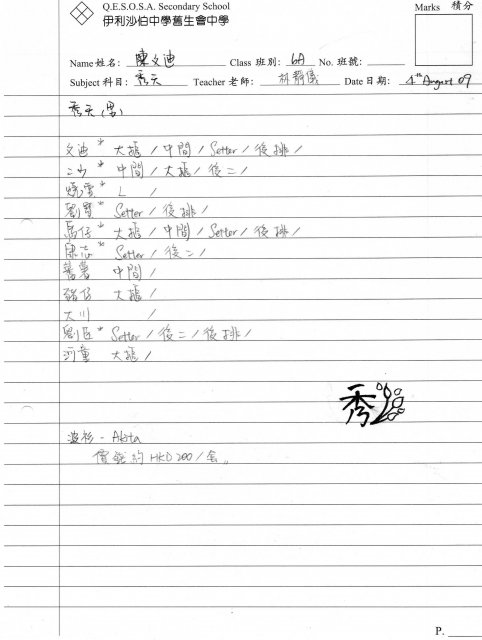 Q.E.S.O.S.A. Secondary School
伊利沙伯中學舊生會中學
Marks 積分
Name 姓名: 陳文迪 Class 班別: 6A No. 班號:
Subject 科目: 秀天 Teacher 老師: 胡靜儀 Date 日期: 4th August 09
秀天(男)
文迪* 大攻 / 中間 / Setter / 後排 /
二山* 中間 / 大攻 / 後二 /
燒雲* L /
劉賢* Setter / 後排 /
馬仔* 大攻 / 中間 / Setter / 後排 /
康志* Setter / 後二 /
薯薯 中間 /
豬仔 大攻 /
大川 /
劉臣* Setter / 後二 / 後排 /
河童 大攻 /
秀
波衫 - Akita
價錢約 HKD 200 / 套。
P.